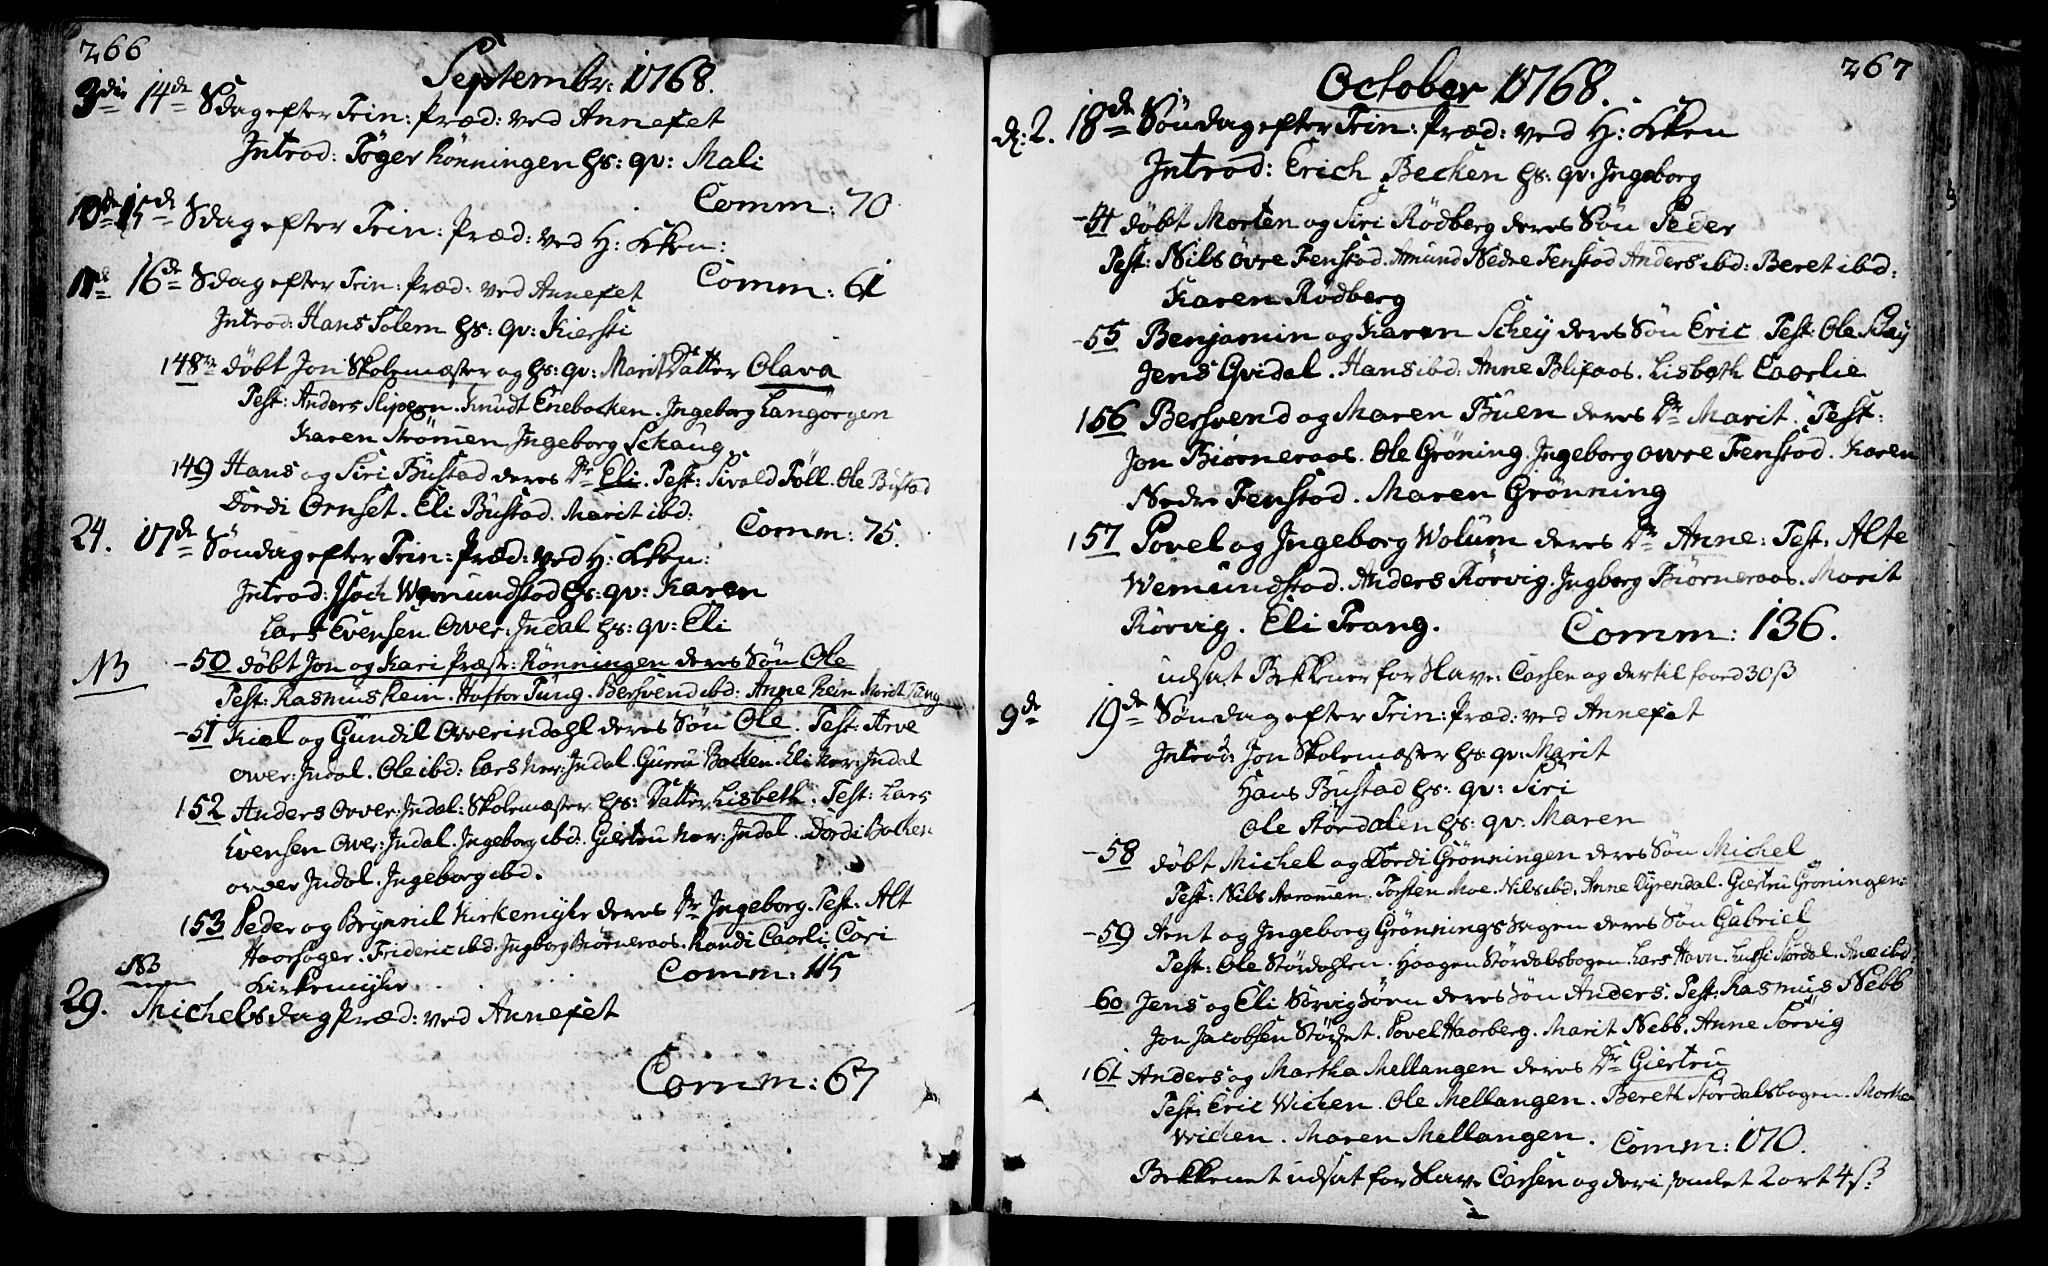 266
Septembr: 1768.
3die 14de Sdag efter Trin: Præd: ved Annexet
Introd: Töger Rönningen hs: qv: Mali
Comm: 70
10de 15de Sdag efter Trin: Præd: ved H: Kken:
Comm: 61
16de Sdag efter Trin: Præd: ved Annexet
Introd: Hans Solem hs: qv: Kiersti
148 döbt Jon Skolemæster og hs: qv: Marit Datter Olava
Test: Anders Slipern. Knudt Enebacken. Ingeborg Langörgen
Karen Strömen Ingeborg Schaug
149 Hans og Siri Bustad deres Dr Eli. Test: Sivald Föll. Ole Bustad
Dordi Ornset. Eli Bustad. Marit ibd:
Comm: 75.
24. 17de Söndag efter Trin: Præd: ved H: Kken:
Introd: Isach Wemundstad hs: qv: Karen
Lars Evensen Over: Indal hs: qv: Eli
NB
-50 döbt Jon og Kari Præst: Rönningen deres Sön Ole
Test: Rasmus Rein. Haftor Tung. Bersvend ibd: Anne Rein Marit Tung
-51 Kiel og Gundil Overindahl deres Sön Ole. Test: Arve
Over: Indal. Ole ibd: Lars Ner: Indal. Gurru Backen. Eli Ner: Indal
152 Anders Over: Indal: Skolemæster hs: Datter Lisbeth. Test: Lars
Evensen Over: Indal. Ingeborg ibd: Giertru Ner: Indal. Dordi Backen
over Indal. Ingeborg ibd.
153 Peder og Brynnil Kirkemyhr deres Dr Ingeborg. Test: Alt
Haarsager. Frideric ibd. Ingborg Biörneraas. Randi Caarli. Cari
Kirkemyhr
Comm: 115
NB
29. Michelsdag Præd: ved Annexet
Comm: 67
267
October 1768.
d: 2. 18de Söndag efter Trin: Præd: ved H: Kken
Introd: Erich Becken hs: qv: Ingeborg
-54 döbt Morten og Siri Rödberg deres Sön Peder
Test: Nils övre Fenstad. Amund Nedre Fenstad Anders ibd: Beret ibd:
Karen Rödberg
-55 Benjamin og Karen Schey deres Sön Eric Test: Ole Schey
Jens Qvidal. Hans ibd: Anne Blixaas. Lisbeth Caarlie
156 Bersvend og Maren Buen deres Dr Marit. Test:
Jon Biörneraas. Ole Gröning. Ingeborg ovre Fenstad. Karen
Nedre Fenstad. Maren Grönning
157 Povel og Ingeborg Wolum deres Dr Anne: Test: Alte
Wemundstad. Anders Rörvig. Ingborg Biörneraas. Marit
Rörvig. Eli Prang.
Comm: 136.
udsat Bekkener for Have Carsen og dertil faaed 30 ß
9de 19de Söndag efter Trin: Præd: ved Annexet
Introd: Jon Skolemæster hs: qv: Marit
Hans Bustad hs: qv: Siri
Ole Stördalen hs: qv: Maren
-58 döbt Michel og Dordi Grönningen deres Sön Michel
Test: Nils Aaramen. Torsten Moe. Nils ibd. Anne Dyrendal. Giertru Gröningen:
-59 Arnt og Ingeborg Grönningshagen deres Sön Gabriel
Test: Ole Stördahlen. Haagen Stördalshagen. Lars Havn. Lussi Stördal. Ane ibd
-60 Jens og Eli Sörvigsören deres Sön Anders. Test: Rasmus Nebb
Jon Jacobsen Stödet. Povel Haarberg. Marit Nebb. Anne Sörvig
161 Anders og Martha Mellangen deres Dr Giertru
Test: Eric Wichen. Ole Mellangen. Bereth Stördalshagen. Martha
Wichen. Maren Mellangen.
Comm: 170.
Bekkenet udsat for Have Carsen og deri samlet 2 ort 4 ß: